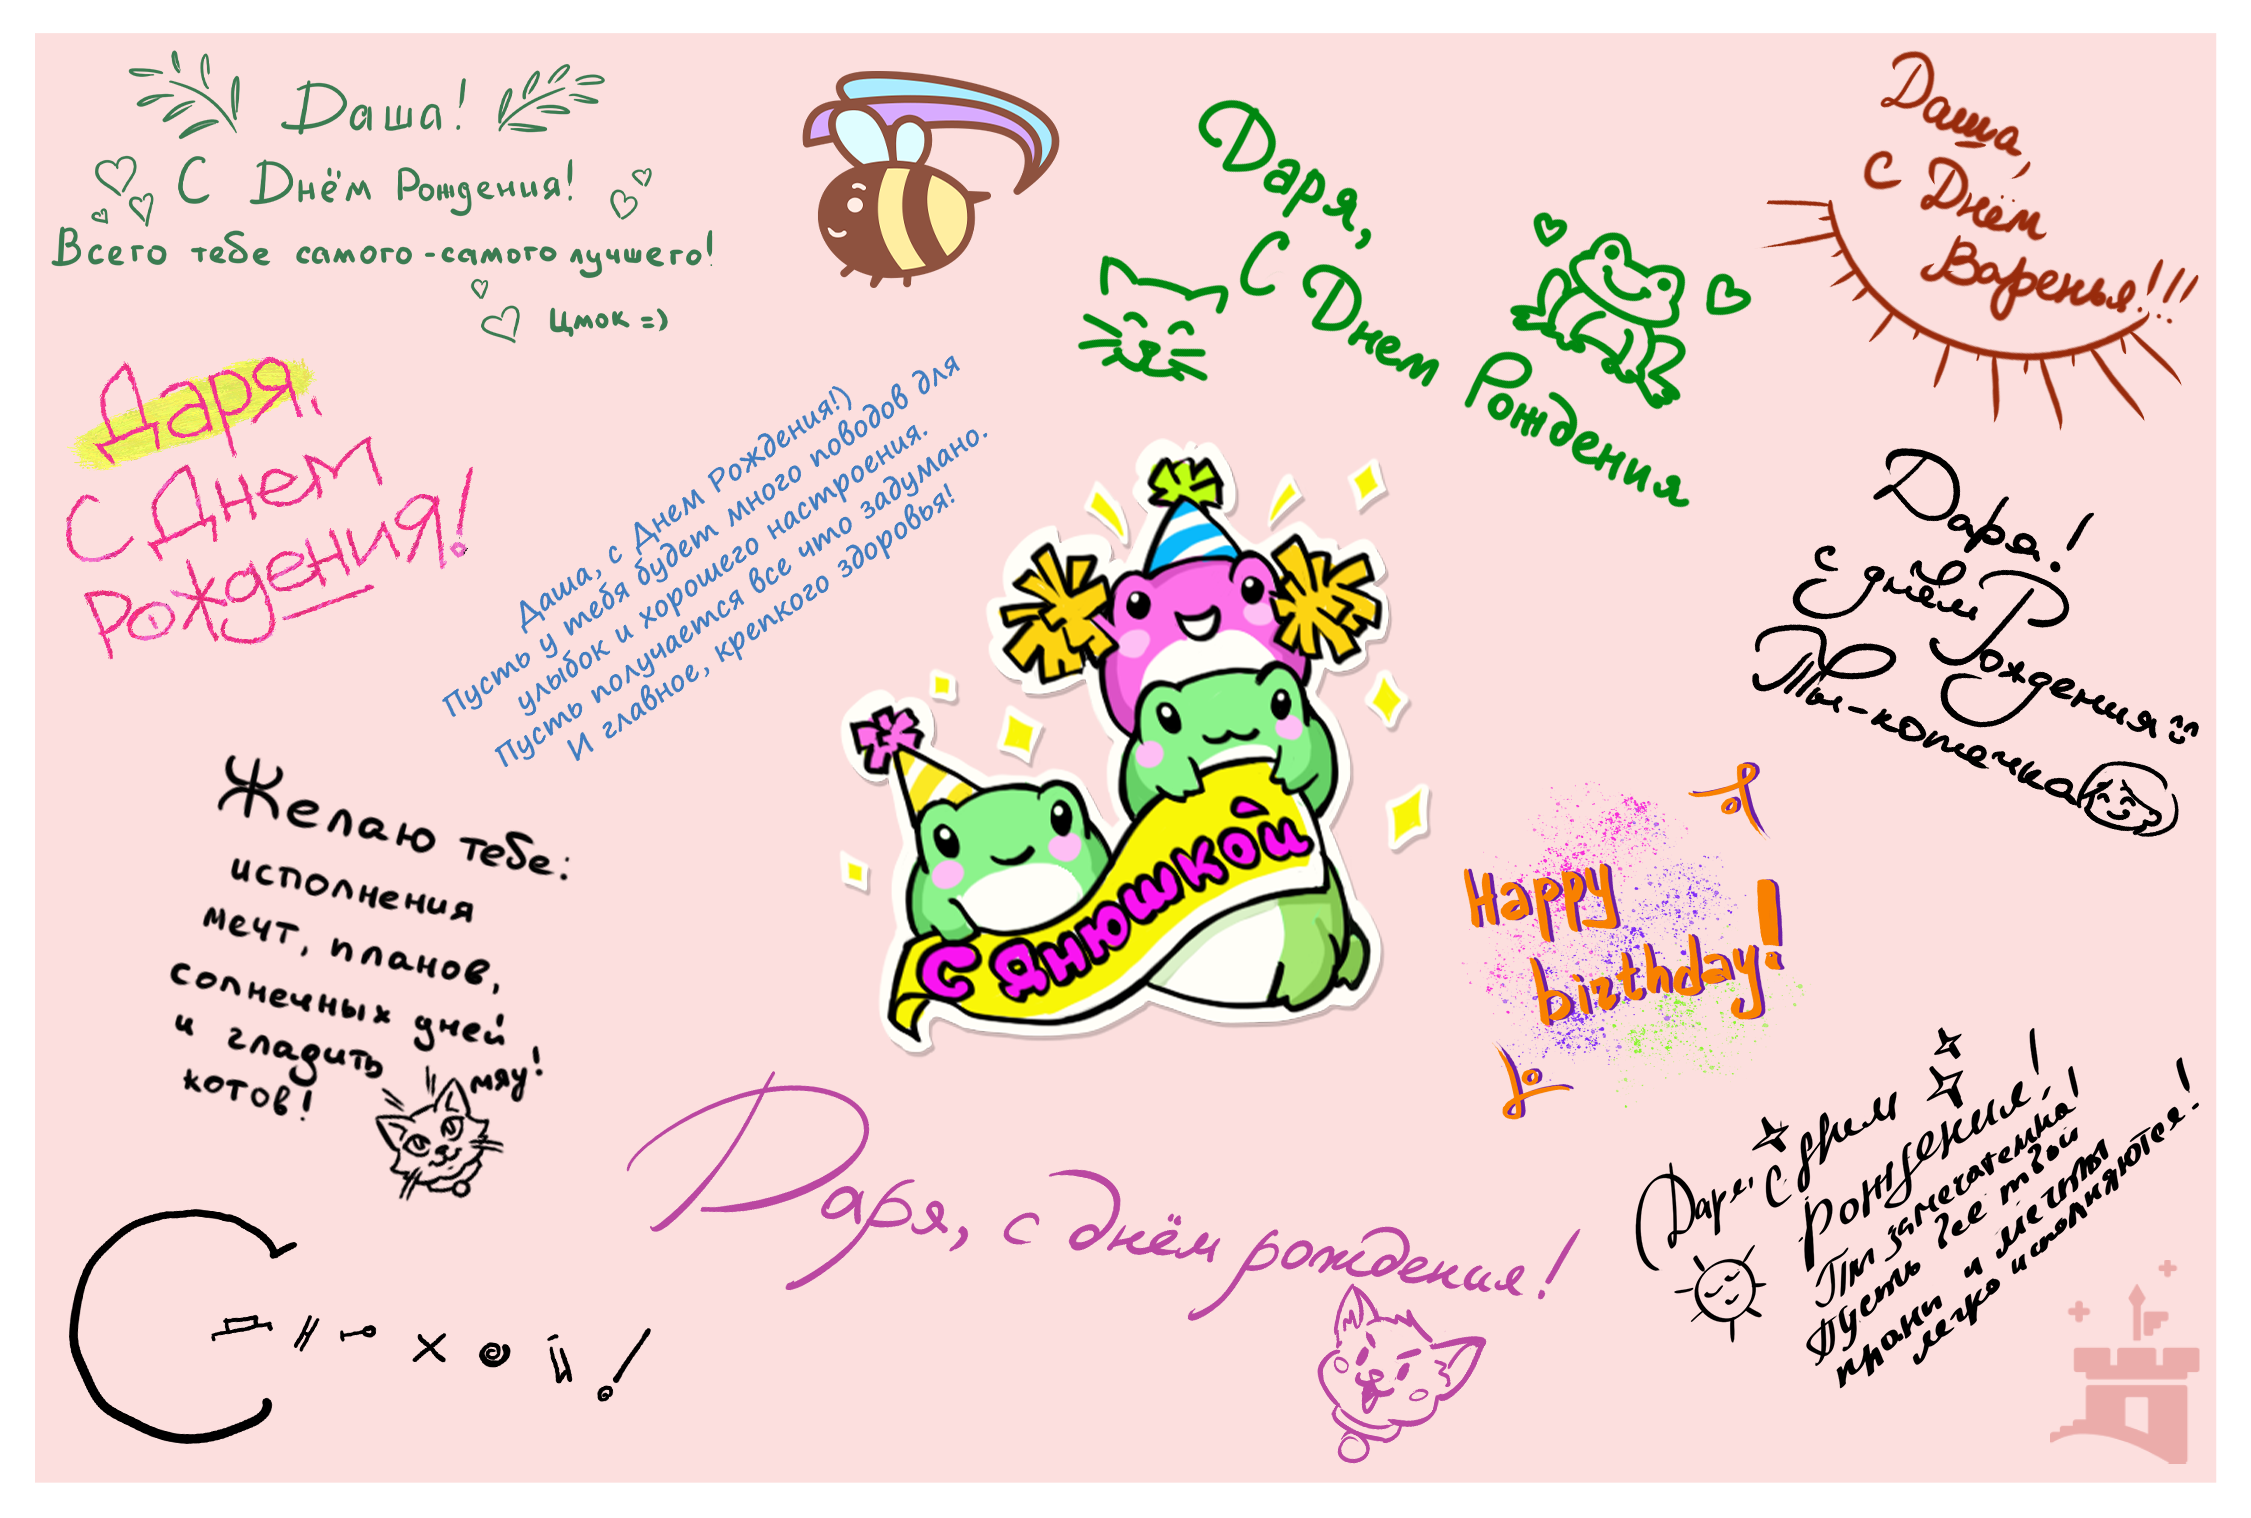 Даша!
С Днём Рождения!
Всего тебе самого-самого лучшего!
Цмок =)
Даря,
С Днем
Рождения
Даша,
С Днём
Варенья!!!
Даря,
С Днем
Рождения!
Даша, с Днем Рождения!)
Пусть у тебя будет много поводов для
улыбок и хорошего настроения.
Пусть получается все что задумано.
И главное, крепкого здоровья!
Даря!
С днём Рождения
Ты-котечка
С днюшкой
Желаю тебе:
исполнения
мечт, планов,
солнечных дней
и гладить
котов!
мяу!
Happy
birthday!
Даря, с днём рождения!
Даря,
С днём
рождения!
Ты замечательная!
Пусть все твои
и мечты
легко исполняются!
С
Днюхой!